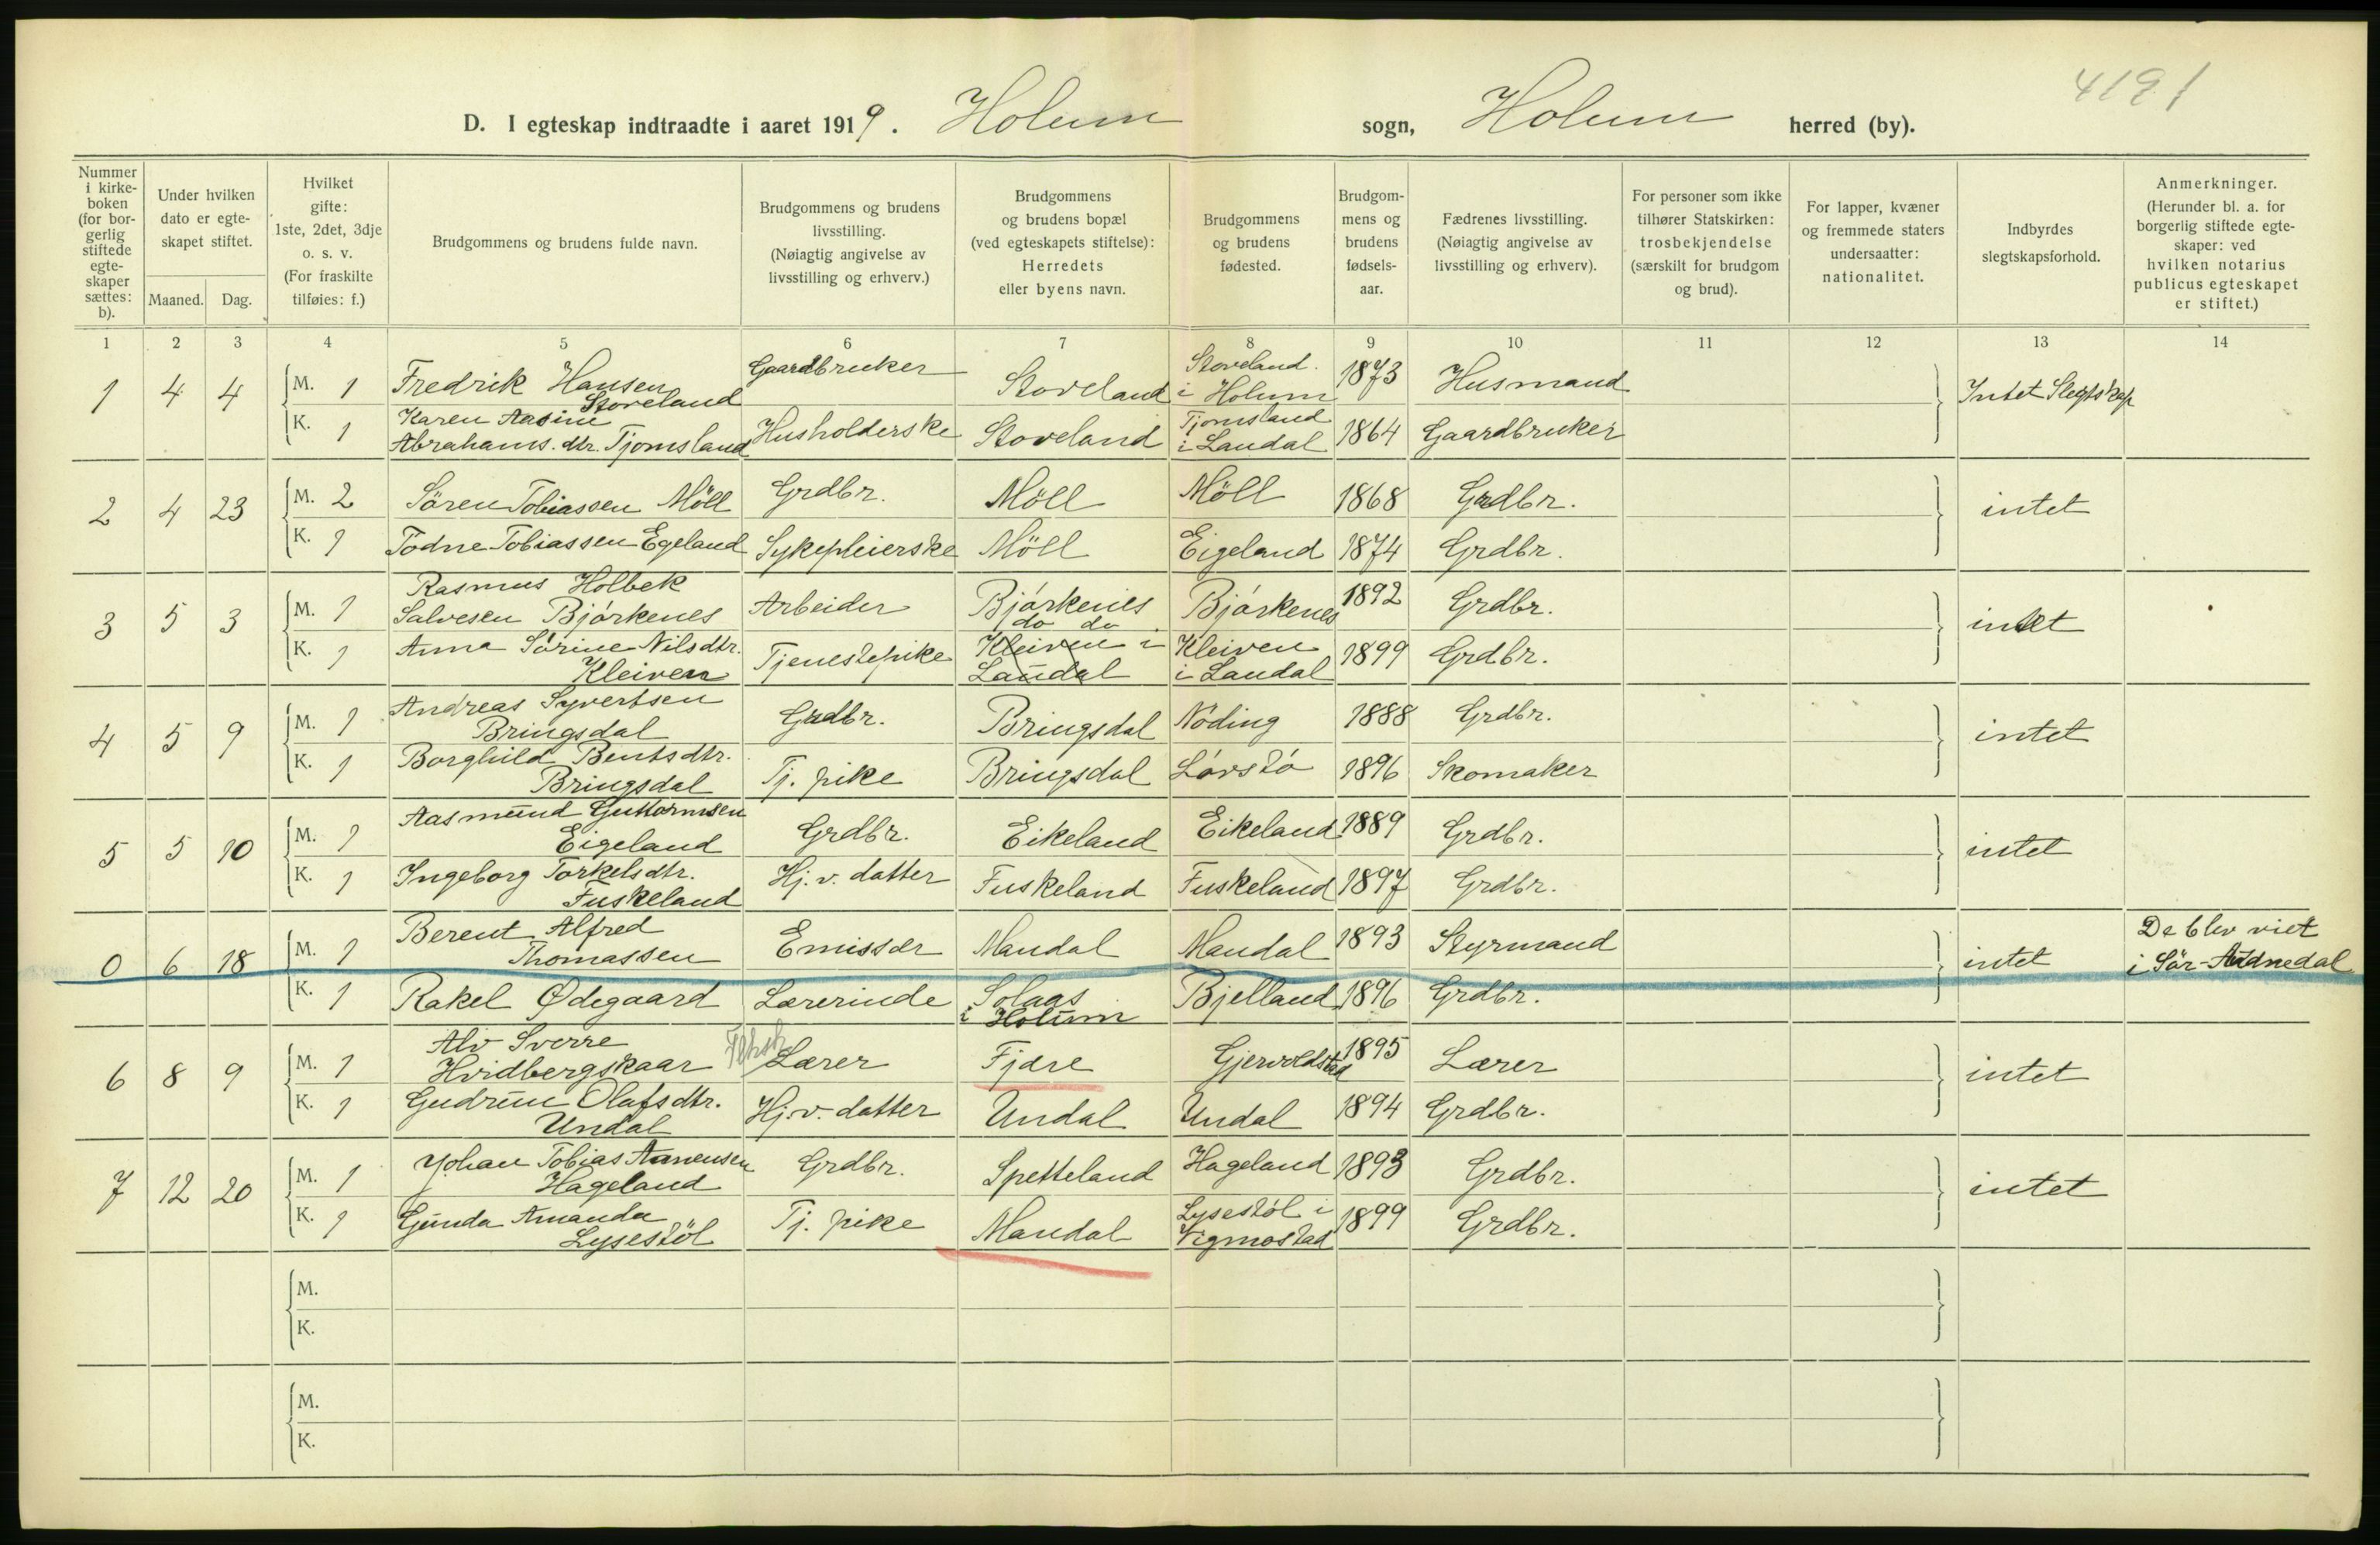 4191
D. I egteskap indtraadte i aaret 1919. Holum sogn, Holum herred (by).
Nummer i kirkeboken (for borgerlig stiftede egteskaper sættes: b).
Under hvilken dato er egteskapet stiftet.
Maaned. Dag.
Hvilket gifte: 1ste, 2det, 3dje o. s. v. (For fraskilte tilføies: f.)
Brudgommens og brudens fulde navn.
Brudgommens og brudens livsstilling. (Nøiagtig angivelse av livsstilling og erhverv.)
Brudgommens og brudens bopæl (ved egteskapets stiftelse): Herredets eller byens navn.
Brudgommens og brudens fødested.
Brudgommens og brudens fødselsaar.
Fædrenes livsstilling. (Nøiagtig angivelse av livsstilling og erhverv).
For personer som ikke tilhører Statskirken: trosbekjendelse (særskilt for brudgom og brud).
For lapper, kvæner og fremmede staters undersaatter: nationalitet.
Indbyrdes slegtskapsforhold.
Anmerkninger. (Herunder bl. a. for borgerlig stiftede egteskaper: ved hvilken notarius publicus egteskapet er stiftet.)
1 2 3 4 5 6 7 8 9 10 11 12 13 14
1 4 4 M. 1 Fredrik Hansen Stoveland Gaardbruker Stoveland Stoveland i Holum 1873 Husmand Intet Slegtskap
K. 1 Karen Aasine Abrahams.dtr. Tjomsland Husholderske Stoveland Tjomsland i Laudal 1864 Gaardbruker
2 4 23 M. 2 Sören Tobiassen Möll Grdbr. Möll Möll 1868 Grdbr. intet
K. 1 Todne Tobiassen Egeland Sykepleierske Möll Eigeland 1874 Grdbr.
3 5 3 M. 1 Rasmus Holbek Salvesen Bjórkenes Arbeider Bjórkenes Bjórkenes 1892 Grdbr. intet
do do
K. 1 Anna Sórine Nilsdtr. Kleiven Tjenestepike Kleiven i Laudal Kleiven i Laudal 1899 Grdbr.
4 5 9 M. 1 Andreas Syvertsen Bringsdal Grdbr. Bringsdal Nóding 1888 Grdbr. intet
K. 1 Borghild Bentsdtr. Bringsdal Tj. pike Bringsdal Lóvstó 1896 Skomaker
5 5 10 M. 1 Aasmund Guttormsen Eigeland Grdbr. Eikeland Eikeland 1889 Grdbr. intet
K. 1 Ingeborg Torkelsdtr. Fuskeland Hj. v. datter Fuskeland Fuskeland 1897 Grdbr.
0 6 18 M. 1 Berent Alfred Thomassen Emissær Mandal Mandal 1893 Styrmand intet De blev viet i Sör-Audnedal
K. 1 Rakel Ødegaard Lærerinde Solaas i Holum Bjelland 1896 Grdbr.
6 8 9 M. 1 Alv Sverre Hvidbergskaar Lærer Fjære Gjervoldstad 1895 Lærer intet
K. 1 Gudrun Olafsdtr. Undal Hj. v. datter Undal Undal 1894 Grdbr.
7 12 20 M. 1 Johan Tobias Aanensen Hageland Grdbr. Spetteland Hageland 1893 Grdbr. intet
K. 1 Gunda Amanda Lysestöl Tj. pike Mandal Lysestöl i Vigmostad 1899 Grdbr.
M.
K.
M.
K.